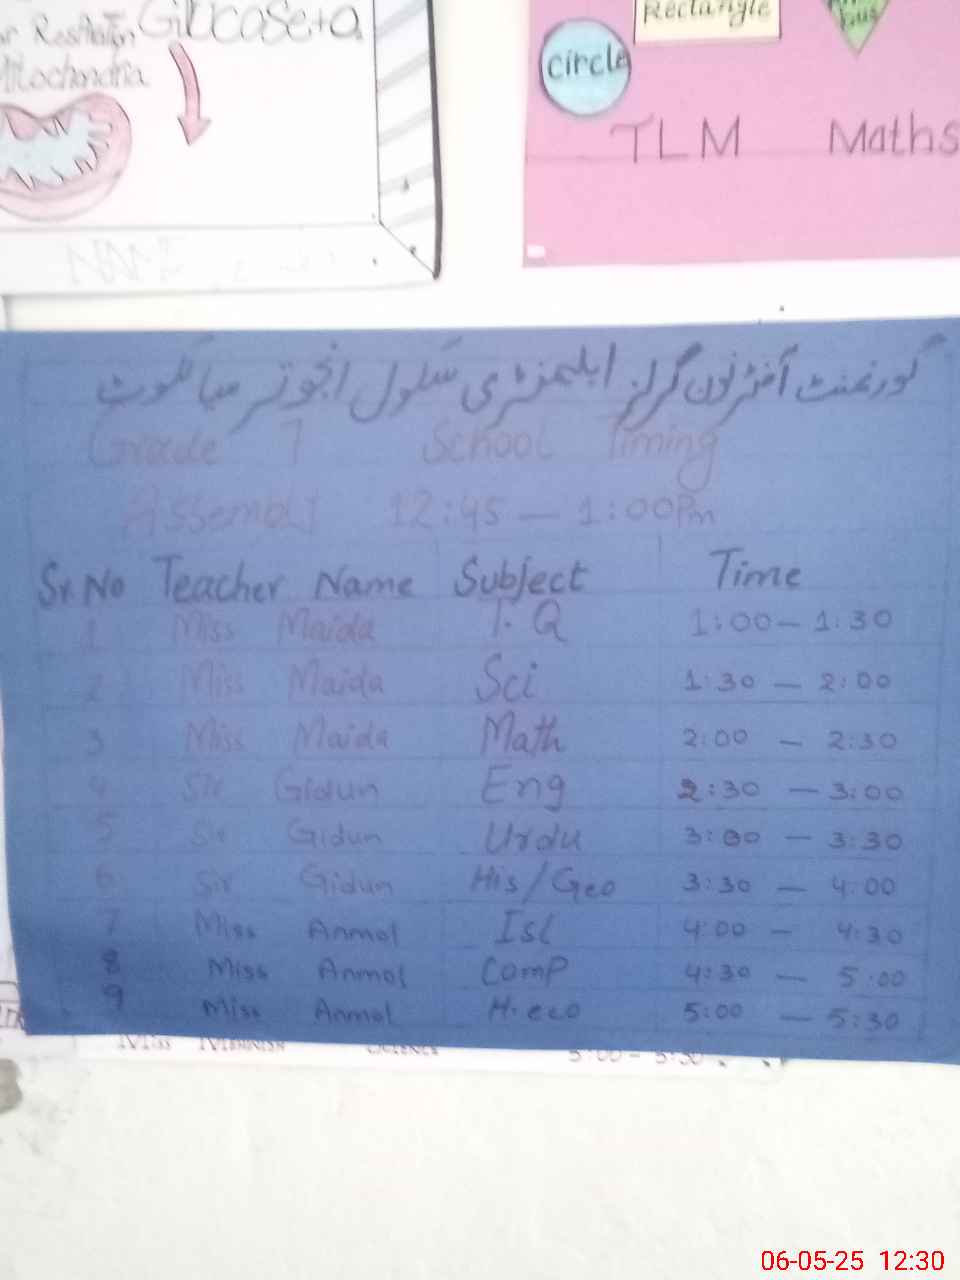 Glucose
Mitochondria
Rectangle
Circle
TLM Maths
NAME
گورنمنٹ آفٹرنون گرلز ایلیمنٹری سکول انجوتر سیالکوٹ
Grade 7 School Timing
Assembly 12:45 — 1:00Pm
Sr.No Teacher Name Subject Time
1 Miss Maida T.Q 1:00 — 1:30
2 Miss Maida Sci 1:30 — 2:00
3 Miss Maida Math 2:00 — 2:30
4 Sir Gidun Eng 2:30 — 3:00
5 Sir Gidun Urdu 3:00 — 3:30
6 Sir Gidun His/Geo 3:30 — 4:00
7 Miss Anmol Isl 4:00 — 4:30
8 Miss Anmol Comp 4:30 — 5:00
9 Miss Anmol H.eco 5:00 — 5:30
Miss Science 5:00 - 5:30
06-05-25 12:30